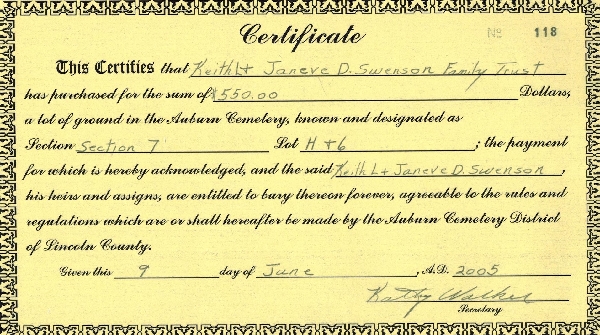 Certificate
No 118
This Certifies that Keith L + Janeve D. Swenson Family Trust
has purchased for the sum of $550.00 Dollars,
a lot of ground in the Auburn Cemetery, known and designated as
Section Section 7 Lot H + 6 ; the payment
for which is hereby acknowledged, and the said Keith L + Janeve D. Swenson,
his heirs and assigns, are entitled to bury thereon forever, agreeable to the rules and
regulations which are or shall hereafter be made by the Auburn Cemetery District
of Lincoln County.
Given this 9 day of June, A.D. 2005
Kathy Walker
Secretary